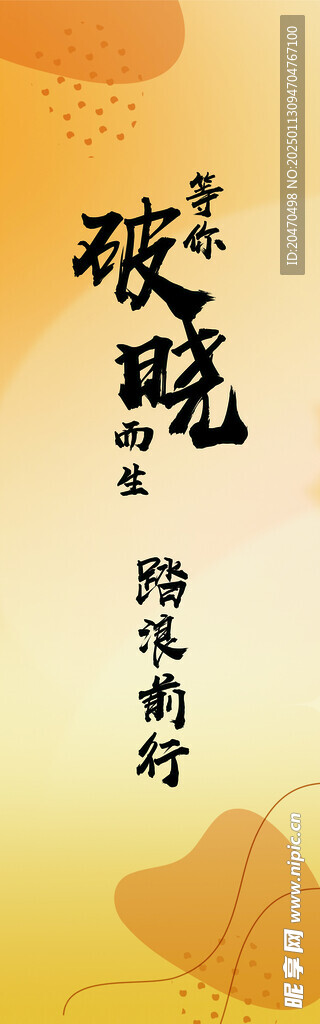 等你
破晓
而生
踏浪前行
ID:20470498 NO:20250113094704767100
昵享网 www.nipic.cn